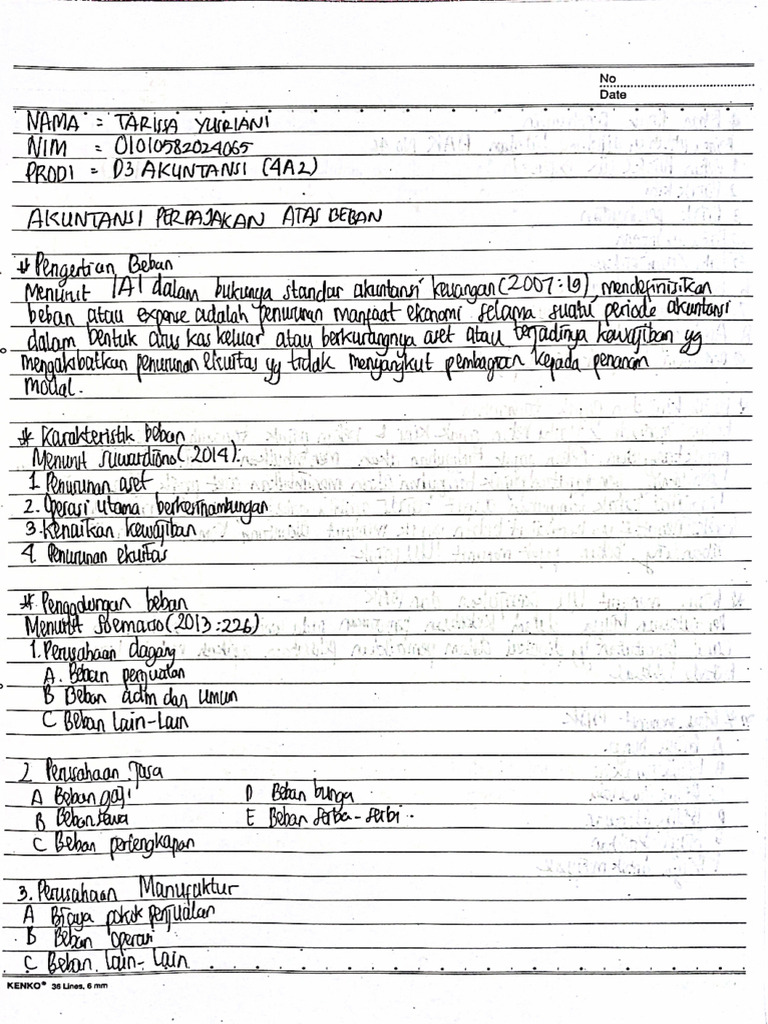 No
Date
NAMA = TARISSA YUSRIANI
NIM = 01010582024065
PRODI = D3 AKUNTANSI (4A2)
AKUNTANSI PERPAJAKAN ATAS BEBAN
* Pengertian Beban
Menurut IAI dalam bukunya standar akuntansi keuangan (2007:19), mendefinisikan
beban atau expense adalah penurunan manfaat ekonomi selama suatu periode akuntansi
dalam bentuk arus kas keluar atau berkurangnya aset atau terjadinya kewajiban yg
mengakibatkan penurunan ekuitas yg tidak menyangkut pembagian kepada penanam
modal.
* Karakteristik beban
Menurut suwardjono (2014):
1. Penurunan aset
2. Operasi utama berkesinambungan
3. Kenaikan kewajiban
4. Penurunan ekuitas
* Penggolongan beban
Menurut Soemarso (2013:226)
1. Perusahaan dagang
A. Beban penjualan
B Beban adm dan umum
C Beban Lain-Lain
2 Perusahaan Jasa
A Beban gaji
B Beban sewa
C Beban perlengkapan
D Beban bunga
E Beban serba-serbi
3. Perusahaan Manufaktur
A Biaya pokok penjualan
B Beban operasi
C Beban Lain-Lain
KENKO® 36 Lines, 6 mm